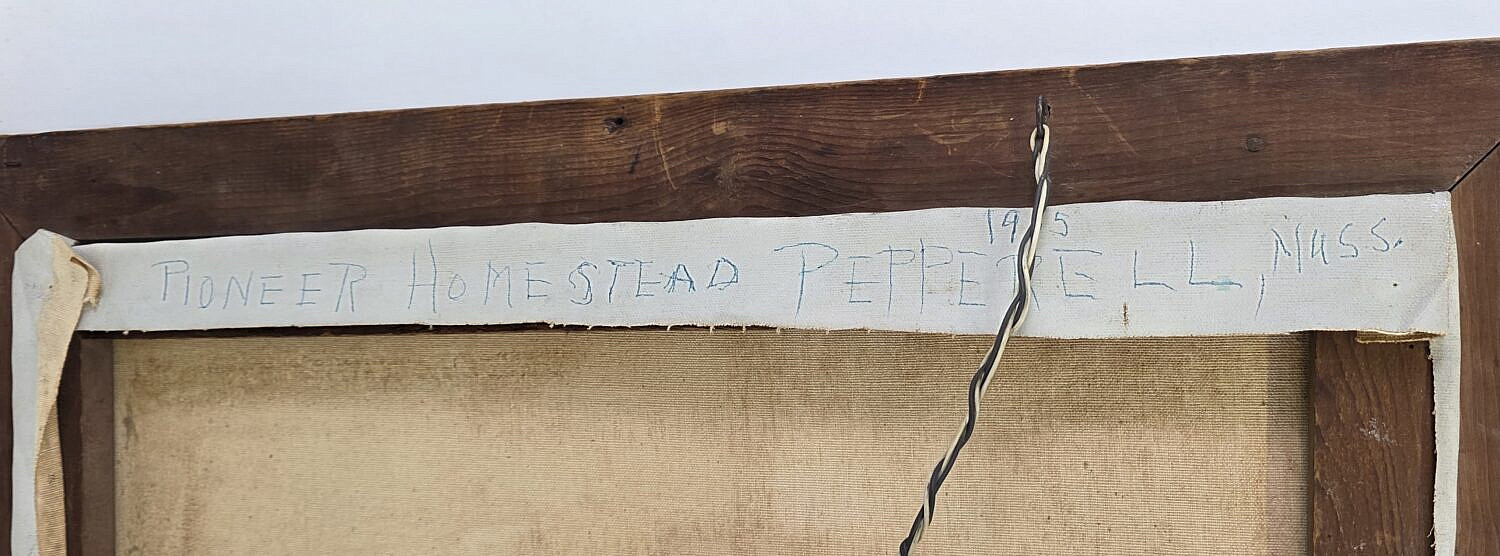 PIONEER HOMESTEAD PEPPERELL, MASS.